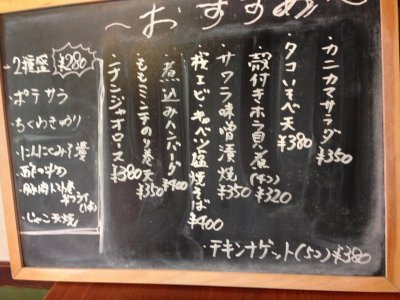 ～おすすめ～
・カニカマサラダ ¥350
・タコいそべ天 ¥380
・殻付きホタテ貝煮(4つ) ¥320
・サワラ味噌漬焼 ¥350
・桜エビ・キャベツ塩焼そば ¥400
・煮込みハンバーグ ¥400
・ももミンチのり巻天 ¥350
・チンジャオロース ¥380
・チキンナゲット(5つ) ¥380
・2種盛 ¥280
・ポテサラ
・ちくわきゅり
・にんにくみそ
・じゃこ天焼